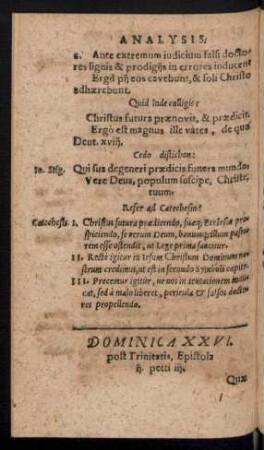 ANALYSIS.
2. Ante extremum iudicium falsi docto-
res signis & prodigijs in errores inducent
Ergò pij eos cavebunt, & soli Christo
adhærebunt.
Quid inde colligis?
Christus futura prænovit, & prædicit.
Ergò est magnus ille vâtes, de quo
Deut. xviij.
Cedo distichon:
Io. Stig. Qui sua degeneri prædicis funera mundo:
Vere Deus, populum suscipe, Christe,
tuum.
Refer ad Catechesin?
Catechesis. I. Christus futura prædicendo, suæq; Ecclesiæ pro-
spiciendo, se verum Deum, bonumq; illum pasto-
rem esse ostendit, ut Lege prima sancitur.
II. Rectè igitur in Iesum Christum Dominum no-
strum credimus, ut est in secundo Symboli capite.
III. Precemur igitur, ne nos in tentationem
cat, sed à malo liberet, pericula & falsos docto-
res propellendo.
DOMINICA XXVI.
post Trinitatis, Epistola
ij. petri iij.
Quæ